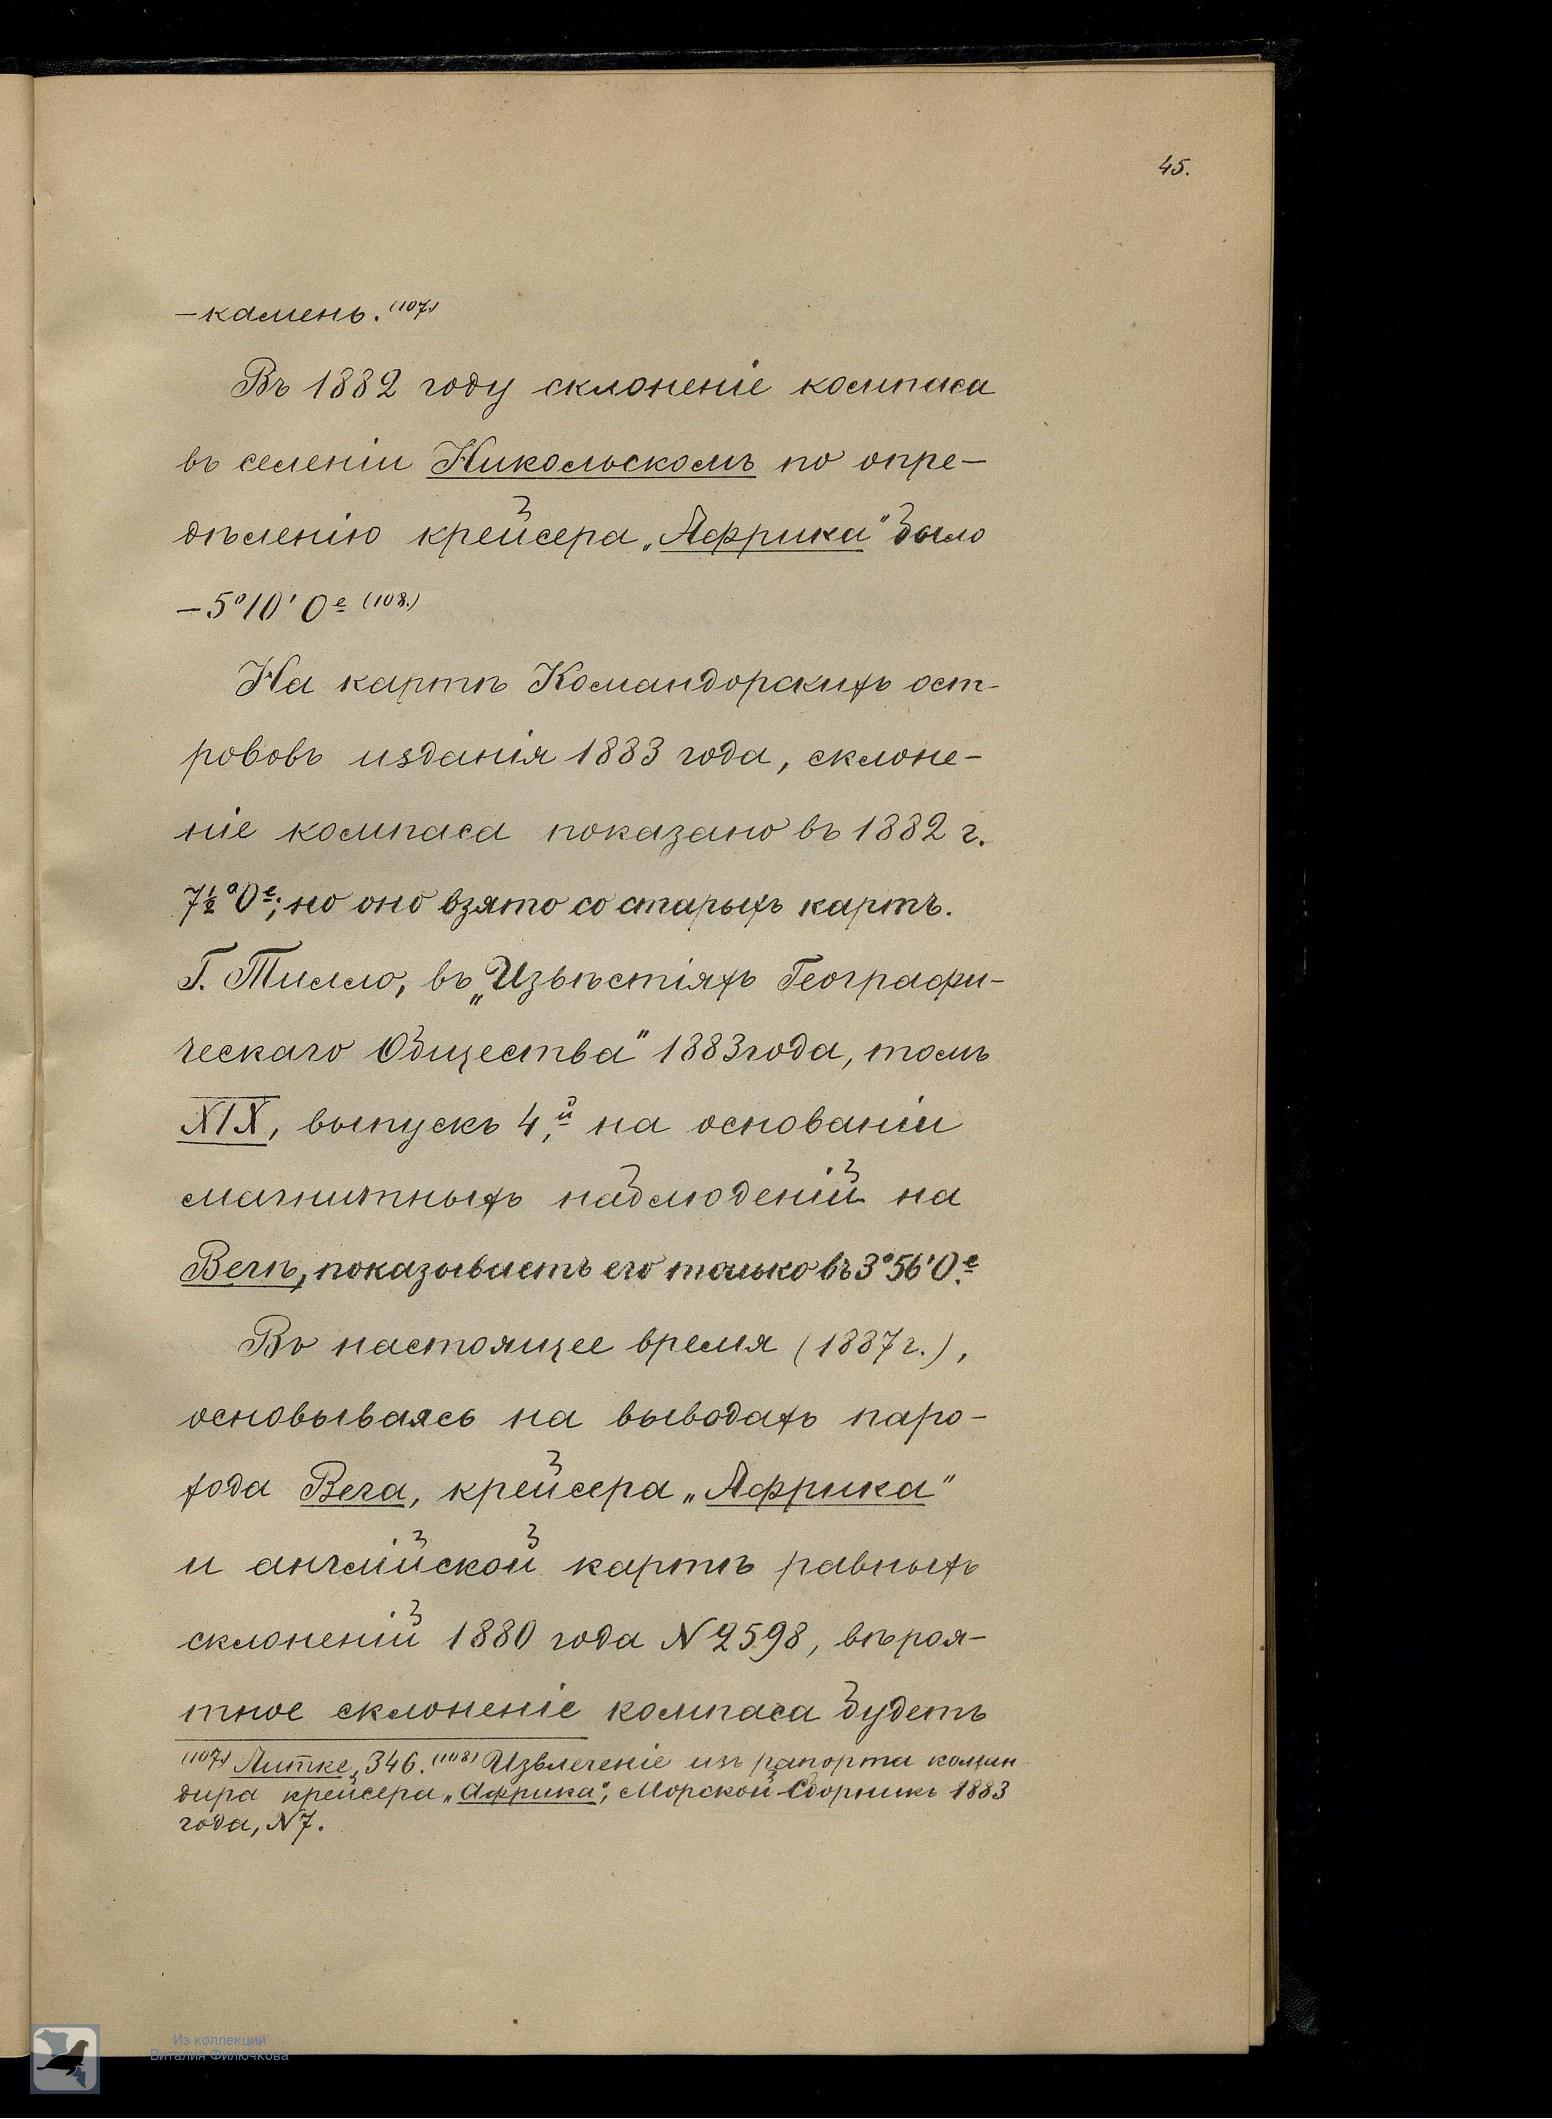 45.
-камень. (107.)
Въ 1882 году склоненіе компаса
въ селеніи Никольскомъ по опре-
дѣленію крейсера „Африка" было
-5°10' Oе (108.)
На картѣ Командорскихъ ост-
рововъ изданія 1883 года, склоне-
ніе компаса показано въ 1882 г.
7½° Oе; но оно взято со старыхъ картъ.
Г. Тилло, въ „Извѣстіяхъ Географи-
ческаго Общества" 1883 года, томъ
XIX, выпускъ 4,й на основаніи
магнитныхъ наблюденій на
Вегѣ, показываетъ его только въ 3°56' Oе.
Въ настоящее время (1887 г.),
основываясь на выводахъ паро-
хода Вега, крейсера „Африка"
и англійской картѣ равныхъ
склоненій 1880 года N 2598, вѣроя-
тное склоненіе компаса будетъ
(107.) Литке, 346. (108) Извлеченіе изъ рапорта коман-
дира крейсера „Африка", Морской Сборникъ 1883
года, N 7.
Из коллекции
Виталия Филючкова